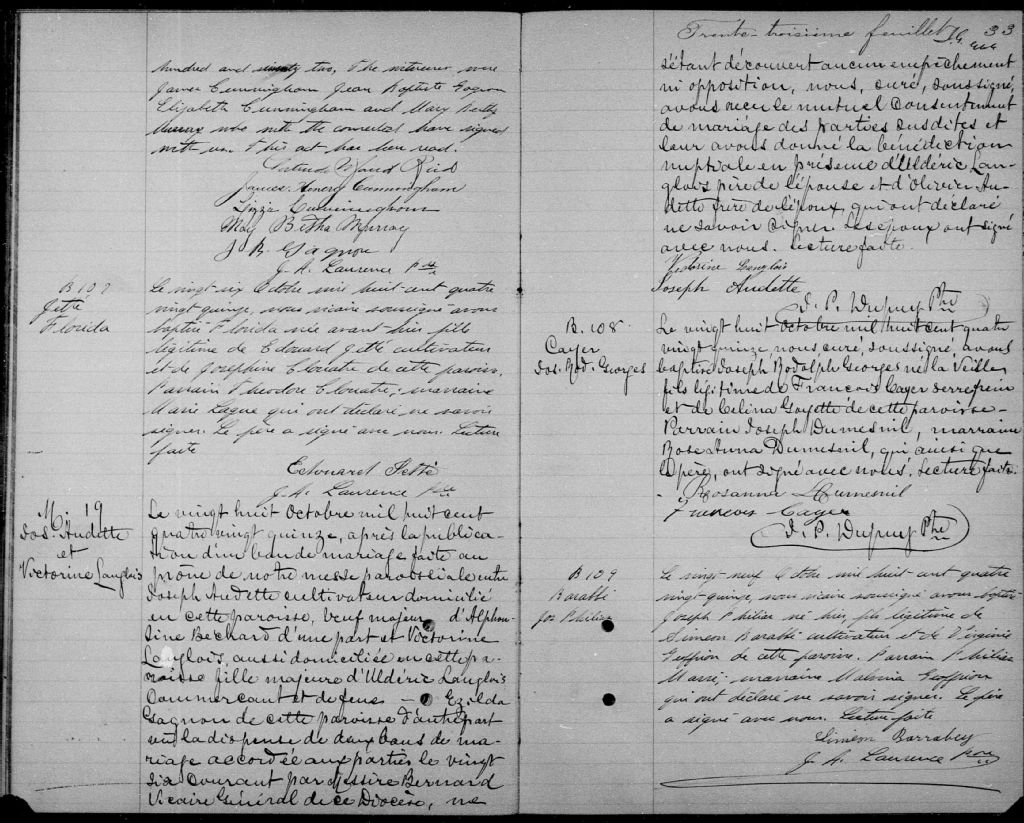 hundred and ninety two, The witnesses were
James Cunningham Jean Baptiste Gagnon
Elizabeth Cunningham and Mary Bertha
Murray who with the consulted have signed
with us. This act has been read.
Maud Reid
James Henery Cunningham
Lizzie Cunningham
May Bertha Murray
J. B. Gagnon
J. A. Laurence Ptre
B 107
Jetté
Florida
Le vingt-six Octobre mil huit-cent quatre
vingt quinze, nous vicaire soussigné avons
baptisé Florida née avant-hier fille
légitime de Edouard Jetté cultivateur
et de Josephine Cloutre de cette paroisse.
Parrain Theodore Cloutre; marraine
Marie Lague qui ont déclaré ne savoir
signer. Le père a signé avec nous. Lecture
faite
Edouard Jetté
J. A. Laurence Ptre
M. 19
Jos. Audette
et
Victorine Langlois
Le vingt huit Octobre mil huit cent
quatre vingt quinze, après la publica-
tion d'un ban de mariage faite au
prône de notre messe paroissiale entre
Joseph Audette cultivateur domicilié
en cette paroisse, veuf majeur d'Alphon-
sine Bechard d'une part et Victorine
Langlois, aussi domiciliée en cette pa-
roisse fille majeure d'Uldéric Langlois
Commercant et de feue Ezilda
Gagnon de cette paroisse d'autre part
vu la dispense de deux bans de ma-
riage accordée aux parties le vingt
six courant par Messire Bernard
Vicaire Général de ce Diocèse, ne
Trente-troisième feuillet 33
s'étant découvert aucun empêchement
ni opposition, nous, curé, soussigné,
avons recu le mutuel consentement
de mariage des parties susdites et
leur avons donné la bénédiction
nuptiale en présence d'Uldéric Lan-
glois père de l'épouse et d'Olivier Au-
dette frère de l'époux, qui ont déclaré
ne savoir signer. Les époux ont signé
avec nous. Lecture faite.
Victorine Langlois
Joseph Audette
J. P. Dupuy Ptre
B. 108
Cayer
Jos. Rod. Georges
Le vingt huit Octobre mil huit cent quatre
vingt quinze nous curé, soussigné, avons
baptisé Joseph Rodolph Georges né la veille
fils légitime de Francois Cayer serre frein
et de Celina Goyette de cette paroisse-
Parrain Joseph Dumesnil, marraine
Rose Anna Dumesnil, qui ainsi que
le père, ont signé avec nous. Lecture faite.
Rosanna Dumesnil
Francois Cayer
J. P. Dupuy Ptre
B 109
Barabbi
Jos Philias
Le vingt-neuf Octobre mil huit-cent quatre
vingt-quinze, nous vicaire soussigné avons baptisé
Joseph Philias né hier, fils légitime de
Simeon Barabbi cultivateur et de Virginie
Geoffrion de cette paroisse. Parrain Philias
Massé; marraine Malvina Geoffrion
qui ont déclaré ne savoir signer. Le père
a signé avec nous. Lecture faite
Simeon Barrabey
J. A. Laurence Ptre